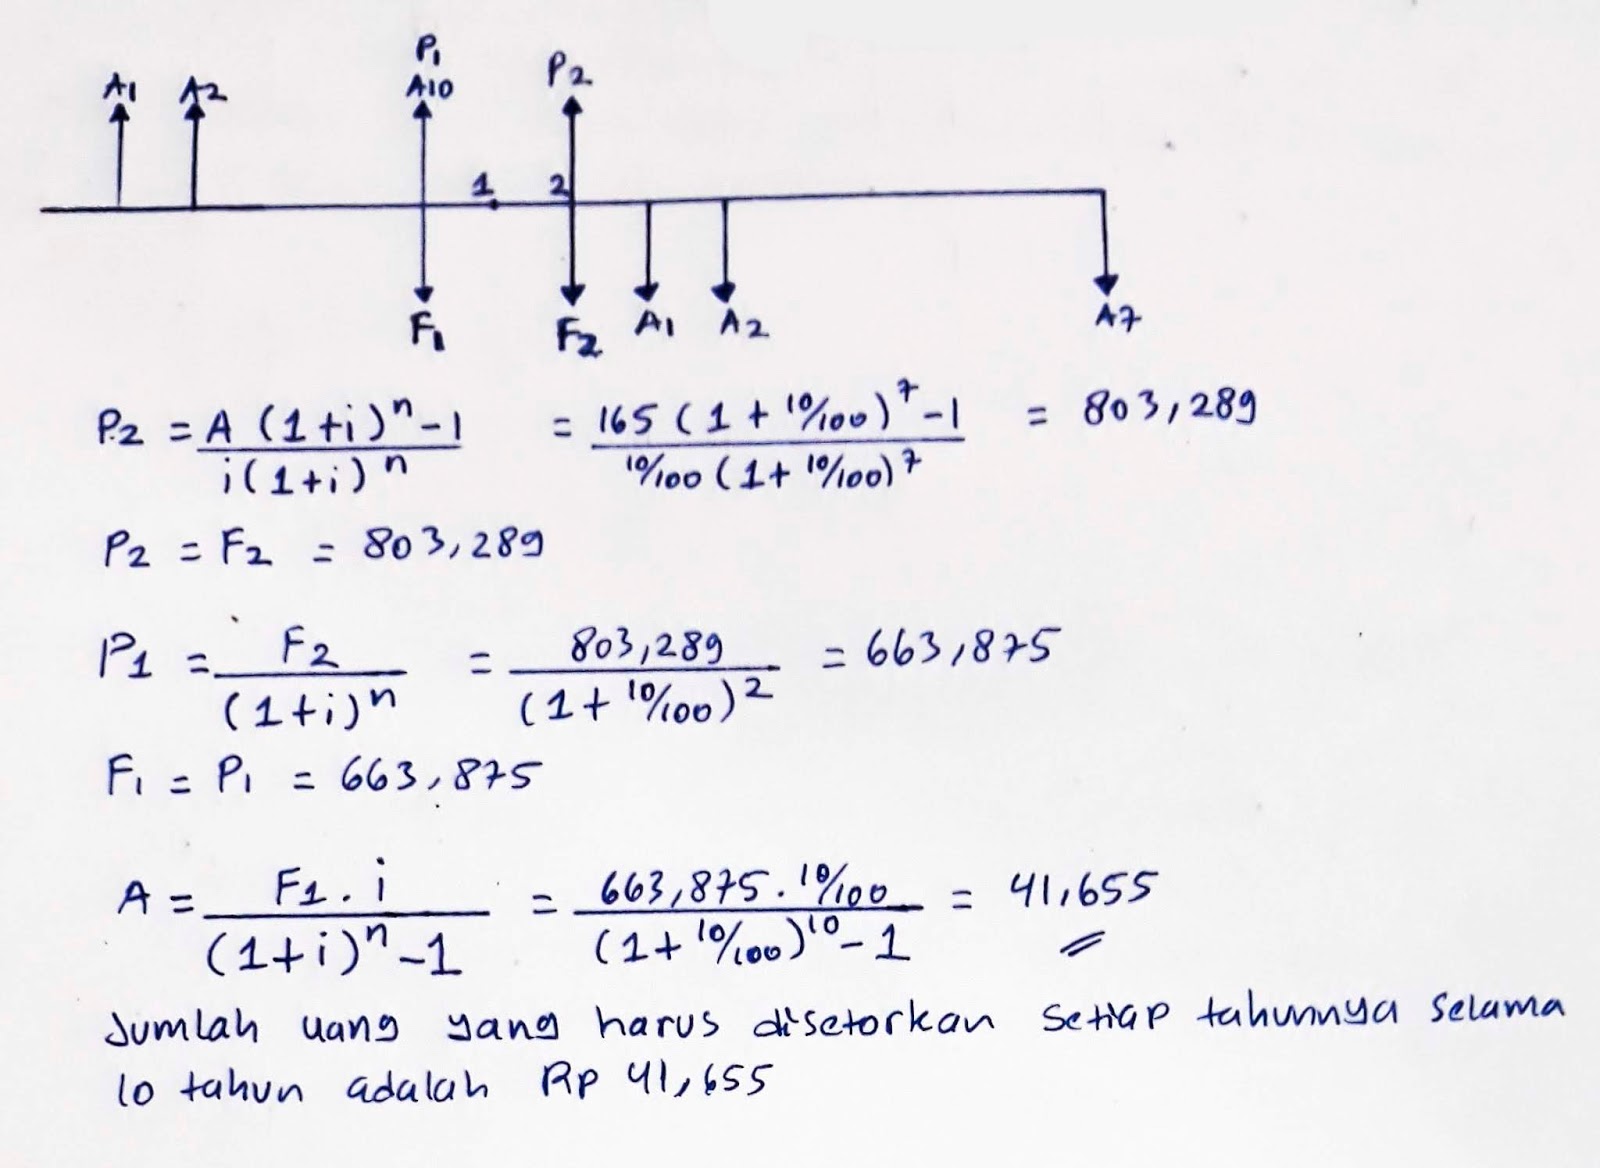 P1
A1 A2 A10 P2
1 2
F1 F2 A1 A2 A7
P.2 = A (1+i)ⁿ-1 / i(1+i)ⁿ = 165 (1 + 10/100)⁷-1 / 10/100 (1+ 10/100)⁷ = 803,289
P2 = F2 = 803,289
P1 = F2 / (1+i)ⁿ = 803,289 / (1+ 10/100)² = 663,875
F1 = P1 = 663,875
A = F1 . i / (1+i)ⁿ-1 = 663,875 . 10/100 / (1+ 10/100)¹⁰-1 = 41,655
Jumlah uang yang harus disetorkan setiap tahunnya selama
10 tahun adalah Rp 41,655